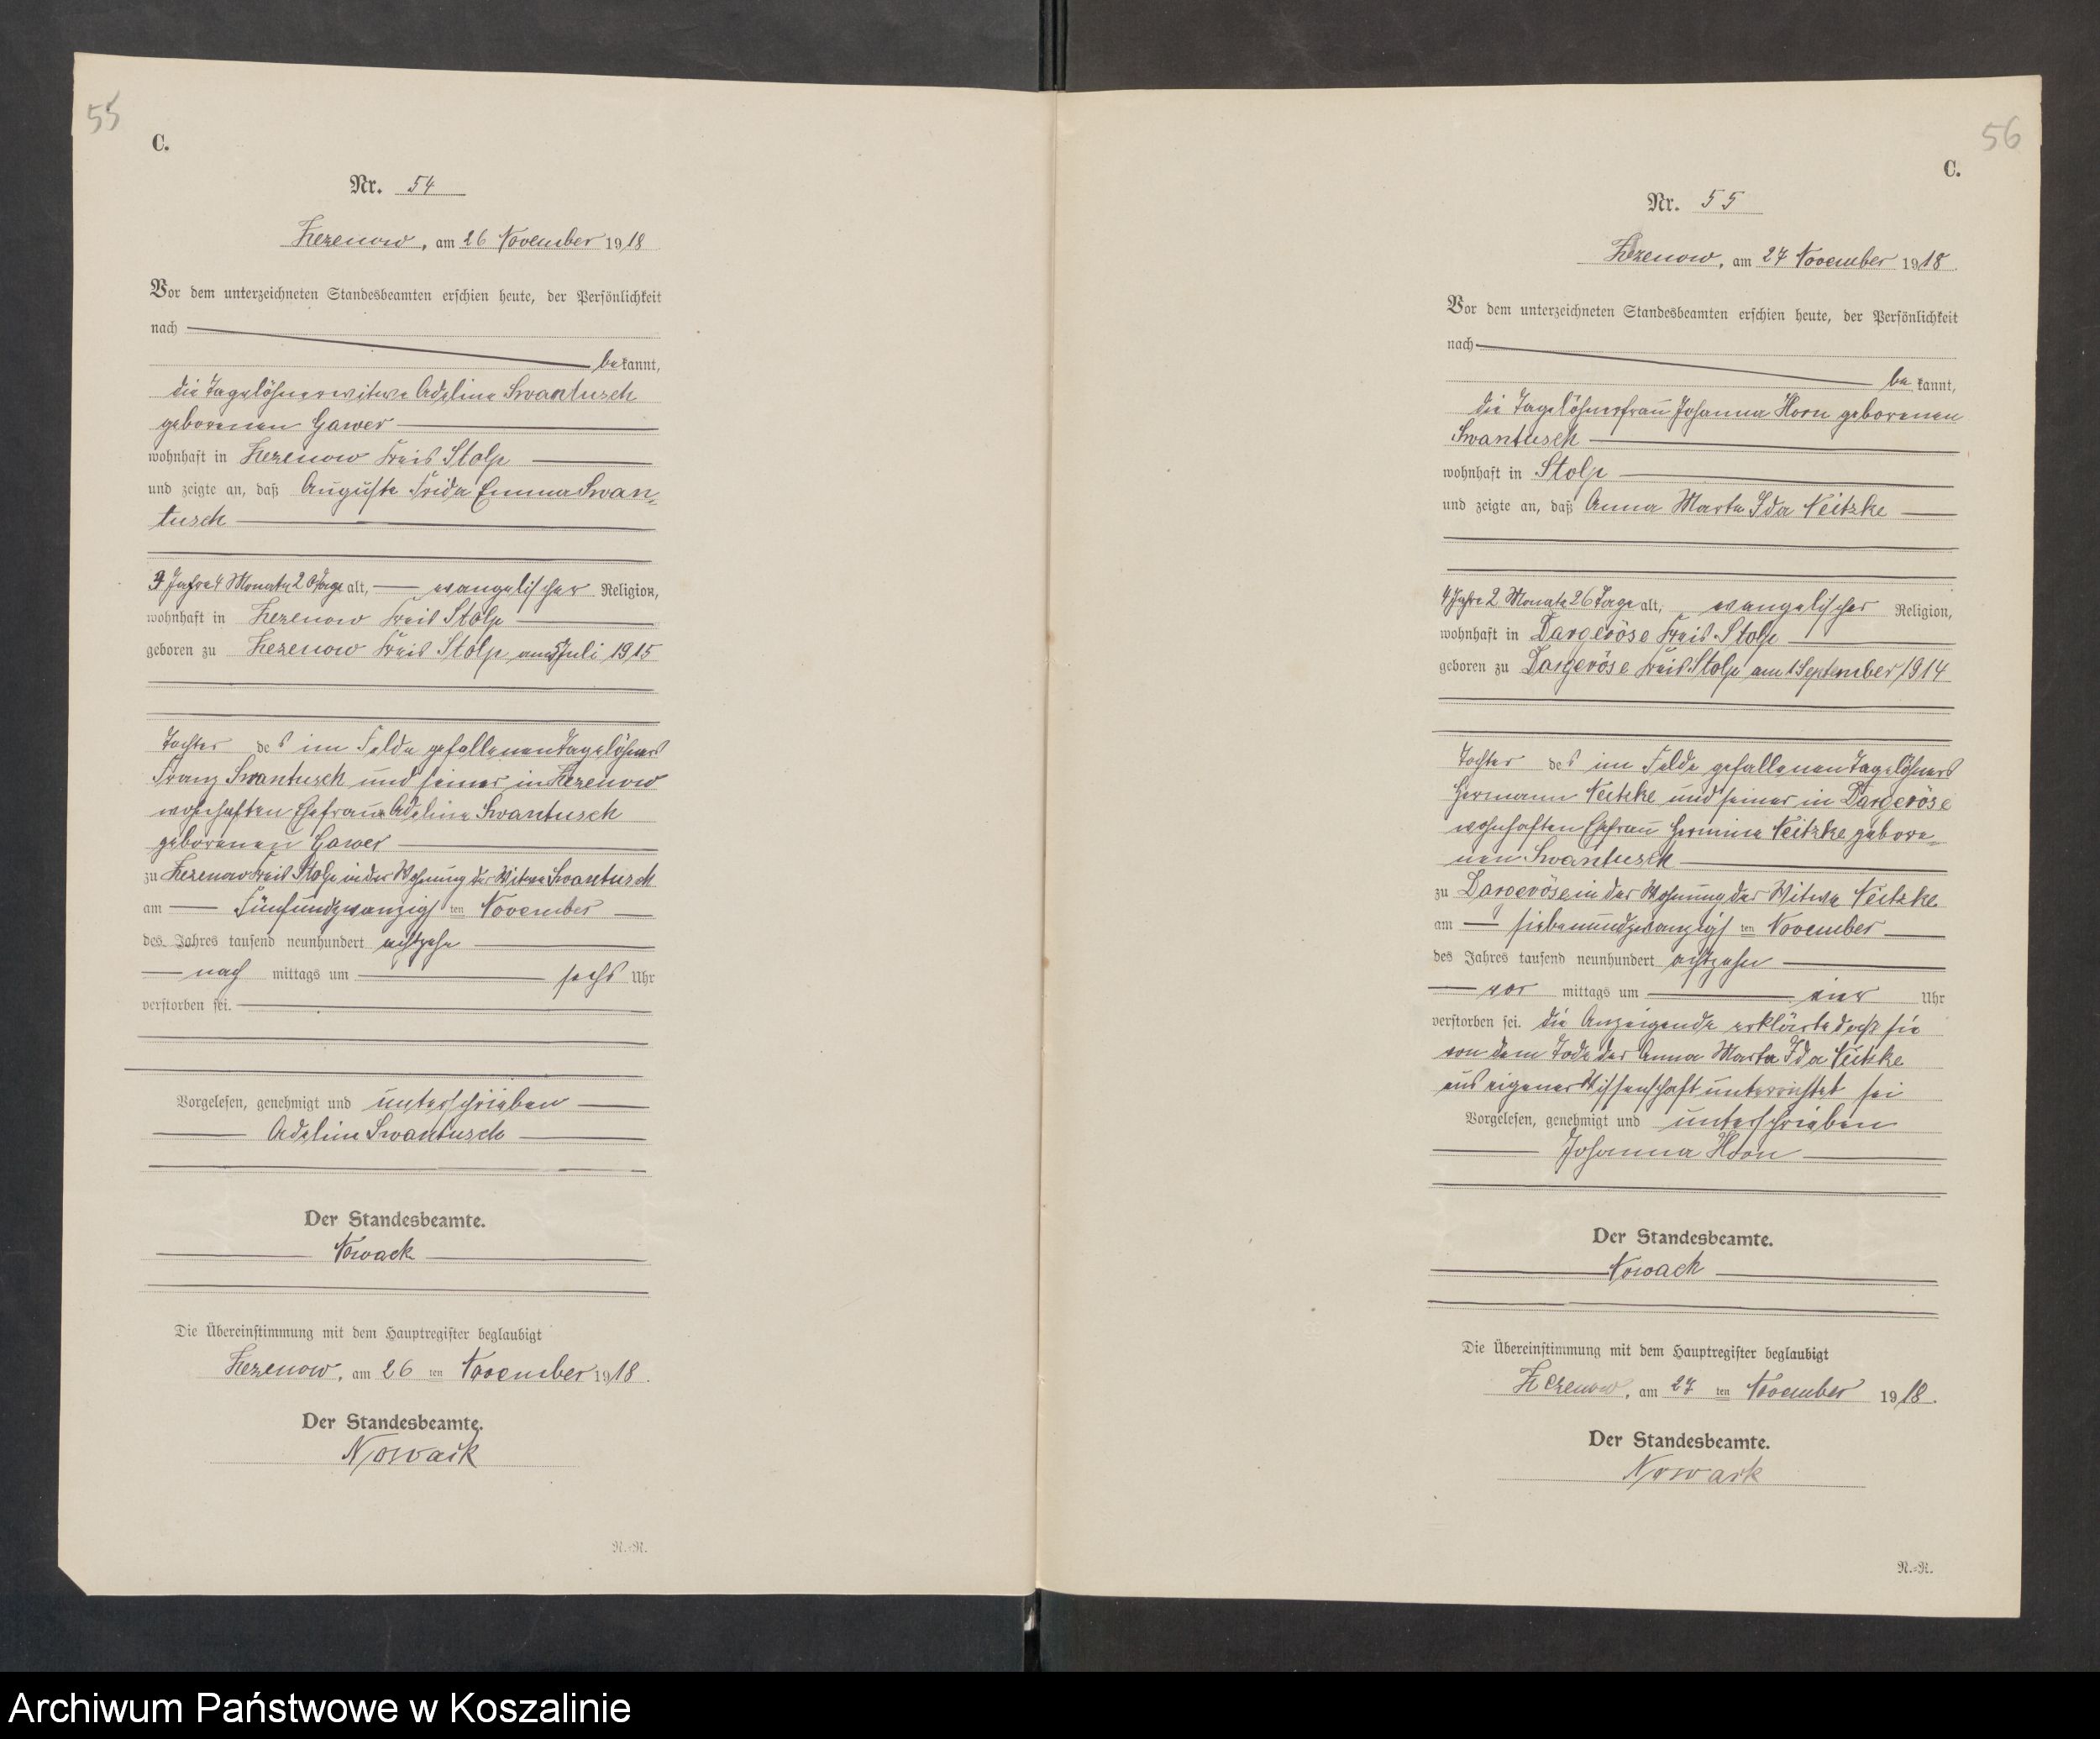 55
C.
Nr. 54
Zezenow, am 26 November 1918
Vor dem unterzeichneten Standesbeamten erschien heute, der Persönlichkeit
nach
bekannt,
die Tagelöhnerwitwe Adeline Swantusch
geborenen Gawer
wohnhaft in Zezenow Kreis Stolp
und zeigte an, daß Auguste Frida Emma Swan-
tusch
3 Jahre 4 Monate 20 Tage alt, evangelischer Religion,
wohnhaft in Zezenow Kreis Stolp
geboren zu Zezenow Kreis Stolp am 5 Juli 1915
Tochter des im Felde gefallenen Tagelöhners
Franz Swantusch und seiner in Zezenow
wohnhaften Ehefrau Adeline Swantusch
geborenen Gawer
zu Zezenow Kreis Stolp in der Wohnung der Witwe Swantusch
am Fünfundzwanzigsten November
des Jahres tausend neunhundert achtzehn
nach mittags um sechs Uhr
verstorben sei.
Vorgelesen, genehmigt und unterschrieben
Adeline Swantusch
Der Standesbeamte.
Nowack
Die Übereinstimmung mit dem Hauptregister beglaubigt
Zezenow, am 26 ten November 1918.
Der Standesbeamte.
Nowack
N.-R.
56
C.
Nr. 55
Zezenow, am 27 November 1918.
Vor dem unterzeichneten Standesbeamten erschien heute, der Persönlichkeit
nach
bekannt,
die Tagelöhnerfrau Johanna Horn geborenen
Swantusch
wohnhaft in Stolp
und zeigte an, daß Anna Marta Ida Neitzke
4 Jahre 2 Monate 26 Tage alt, evangelischer Religion,
wohnhaft in Dargeröse Kreis Stolp
geboren zu Dargeröse Kreis Stolp am 1 September 1914
Tochter des im Felde gefallenen Tagelöhners
Hermann Neitzke und seiner in Dargeröse
wohnhaften Ehefrau Hermine Neitzke gebore-
nen Swantusch
zu Dargeröse in der Wohnung der Witwe Neitzke
am siebenundzwanzigsten November
des Jahres tausend neunhundert achtzehn
vor mittags um vier Uhr
verstorben sei. die Anzeigende erklärte daß sie
von dem Tode der Anna Marta Ida Neitzke
aus eigener Wissenschaft unterrichtet sei
Vorgelesen, genehmigt und unterschrieben
Johanna Horn
Der Standesbeamte.
Nowack
Die Übereinstimmung mit dem Hauptregister beglaubigt
Zezenow, am 27 ten November 1918.
Der Standesbeamte.
Nowack
N.-R.
Archiwum Państwowe w Koszalinie